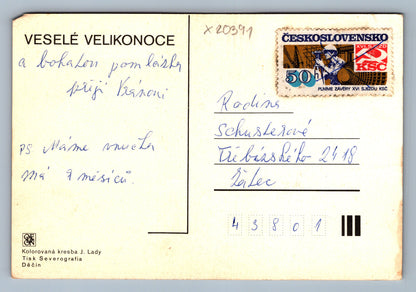 VESELÉ VELIKONOCE
a bohatou pomlázku
přejí Vránovi
PS Máme vnučku
má 9 měsíců.
Kolorovaná kresba J. Lady
Tisk Severografia
Děčín
X20391
ČESKOSLOVENSKO
XVI. SJEZD
KSČ
50
PLNÍME ZÁVĚRY XVI. SJEZDU KSČ
Rodina
Schusterové
Třebízského 2418
Žatec
43801